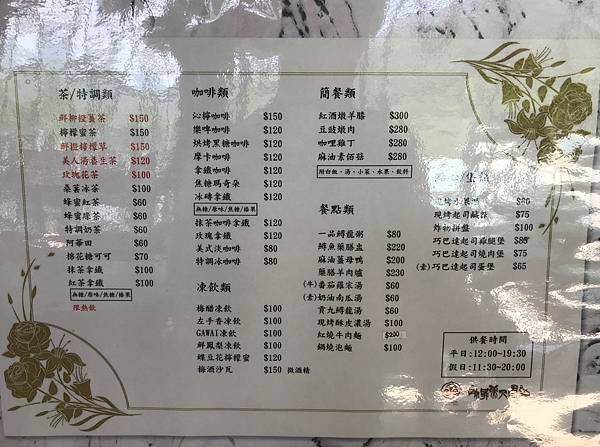 茶/特調類
鮮柳橙薑茶 $150
檸檬蜜茶 $150
鮮橙檸檬草 $150
美人湯養生茶 $120
玫瑰花茶 $100
桑葚冰茶 $100
蜂蜜紅茶 $60
蜂蜜綠茶 $60
特調奶茶 $60
阿華田 $60
棉花糖可可 $70
抹茶拿鐵 $100
紅茶拿鐵 $100
無糖/原味/焦糖/榛果
限熱飲
咖啡類
沁檸咖啡 $150
樂啤咖啡 $120
烘烤黑糖咖啡 $120
摩卡咖啡 $120
拿鐵咖啡 $120
焦糖瑪奇朵 $120
冰磚拿鐵 $120
無糖/原味/焦糖/榛果
抹茶咖啡拿鐵 $120
玫瑰拿鐵 $120
美式淡咖啡 $80
特調冰咖啡 $80
凍飲類
梅醋凍飲 $100
左手香凍飲 $100
GAWAI凍飲 $100
鮮鳳梨凍飲 $100
蝶豆花檸檬蜜 $120
梅酒沙瓦 $150 微酒精
簡餐類
紅酒燉羊膝 $300
豆豉燉肉 $280
咖哩雞丁 $280
麻油素佰菇 $280
附白飯、湯、小菜、水果、飲料
餐點類
一品鱘龍粥 $80
鱘魚藥膳盅 $220
麻油薑母鴨 $200
藥膳羊肉爐 $230
(牛)番茄羅宋湯 $60
(素)奶油南瓜湯 $60
貢丸鱘龍湯 $60
現烤酥皮濃湯 $100
紅燒牛肉麵 $200
鍋燒泡麵 $100
現烤起司鹹酥 $75
炸物拼盤 $100
巧巴達起司雞腿堡 $85
巧巴達起司燒肉堡 $75
(素)巧巴達起司蛋堡 $65
供餐時間
平日:12:00~19:30
假日:11:30~20:00